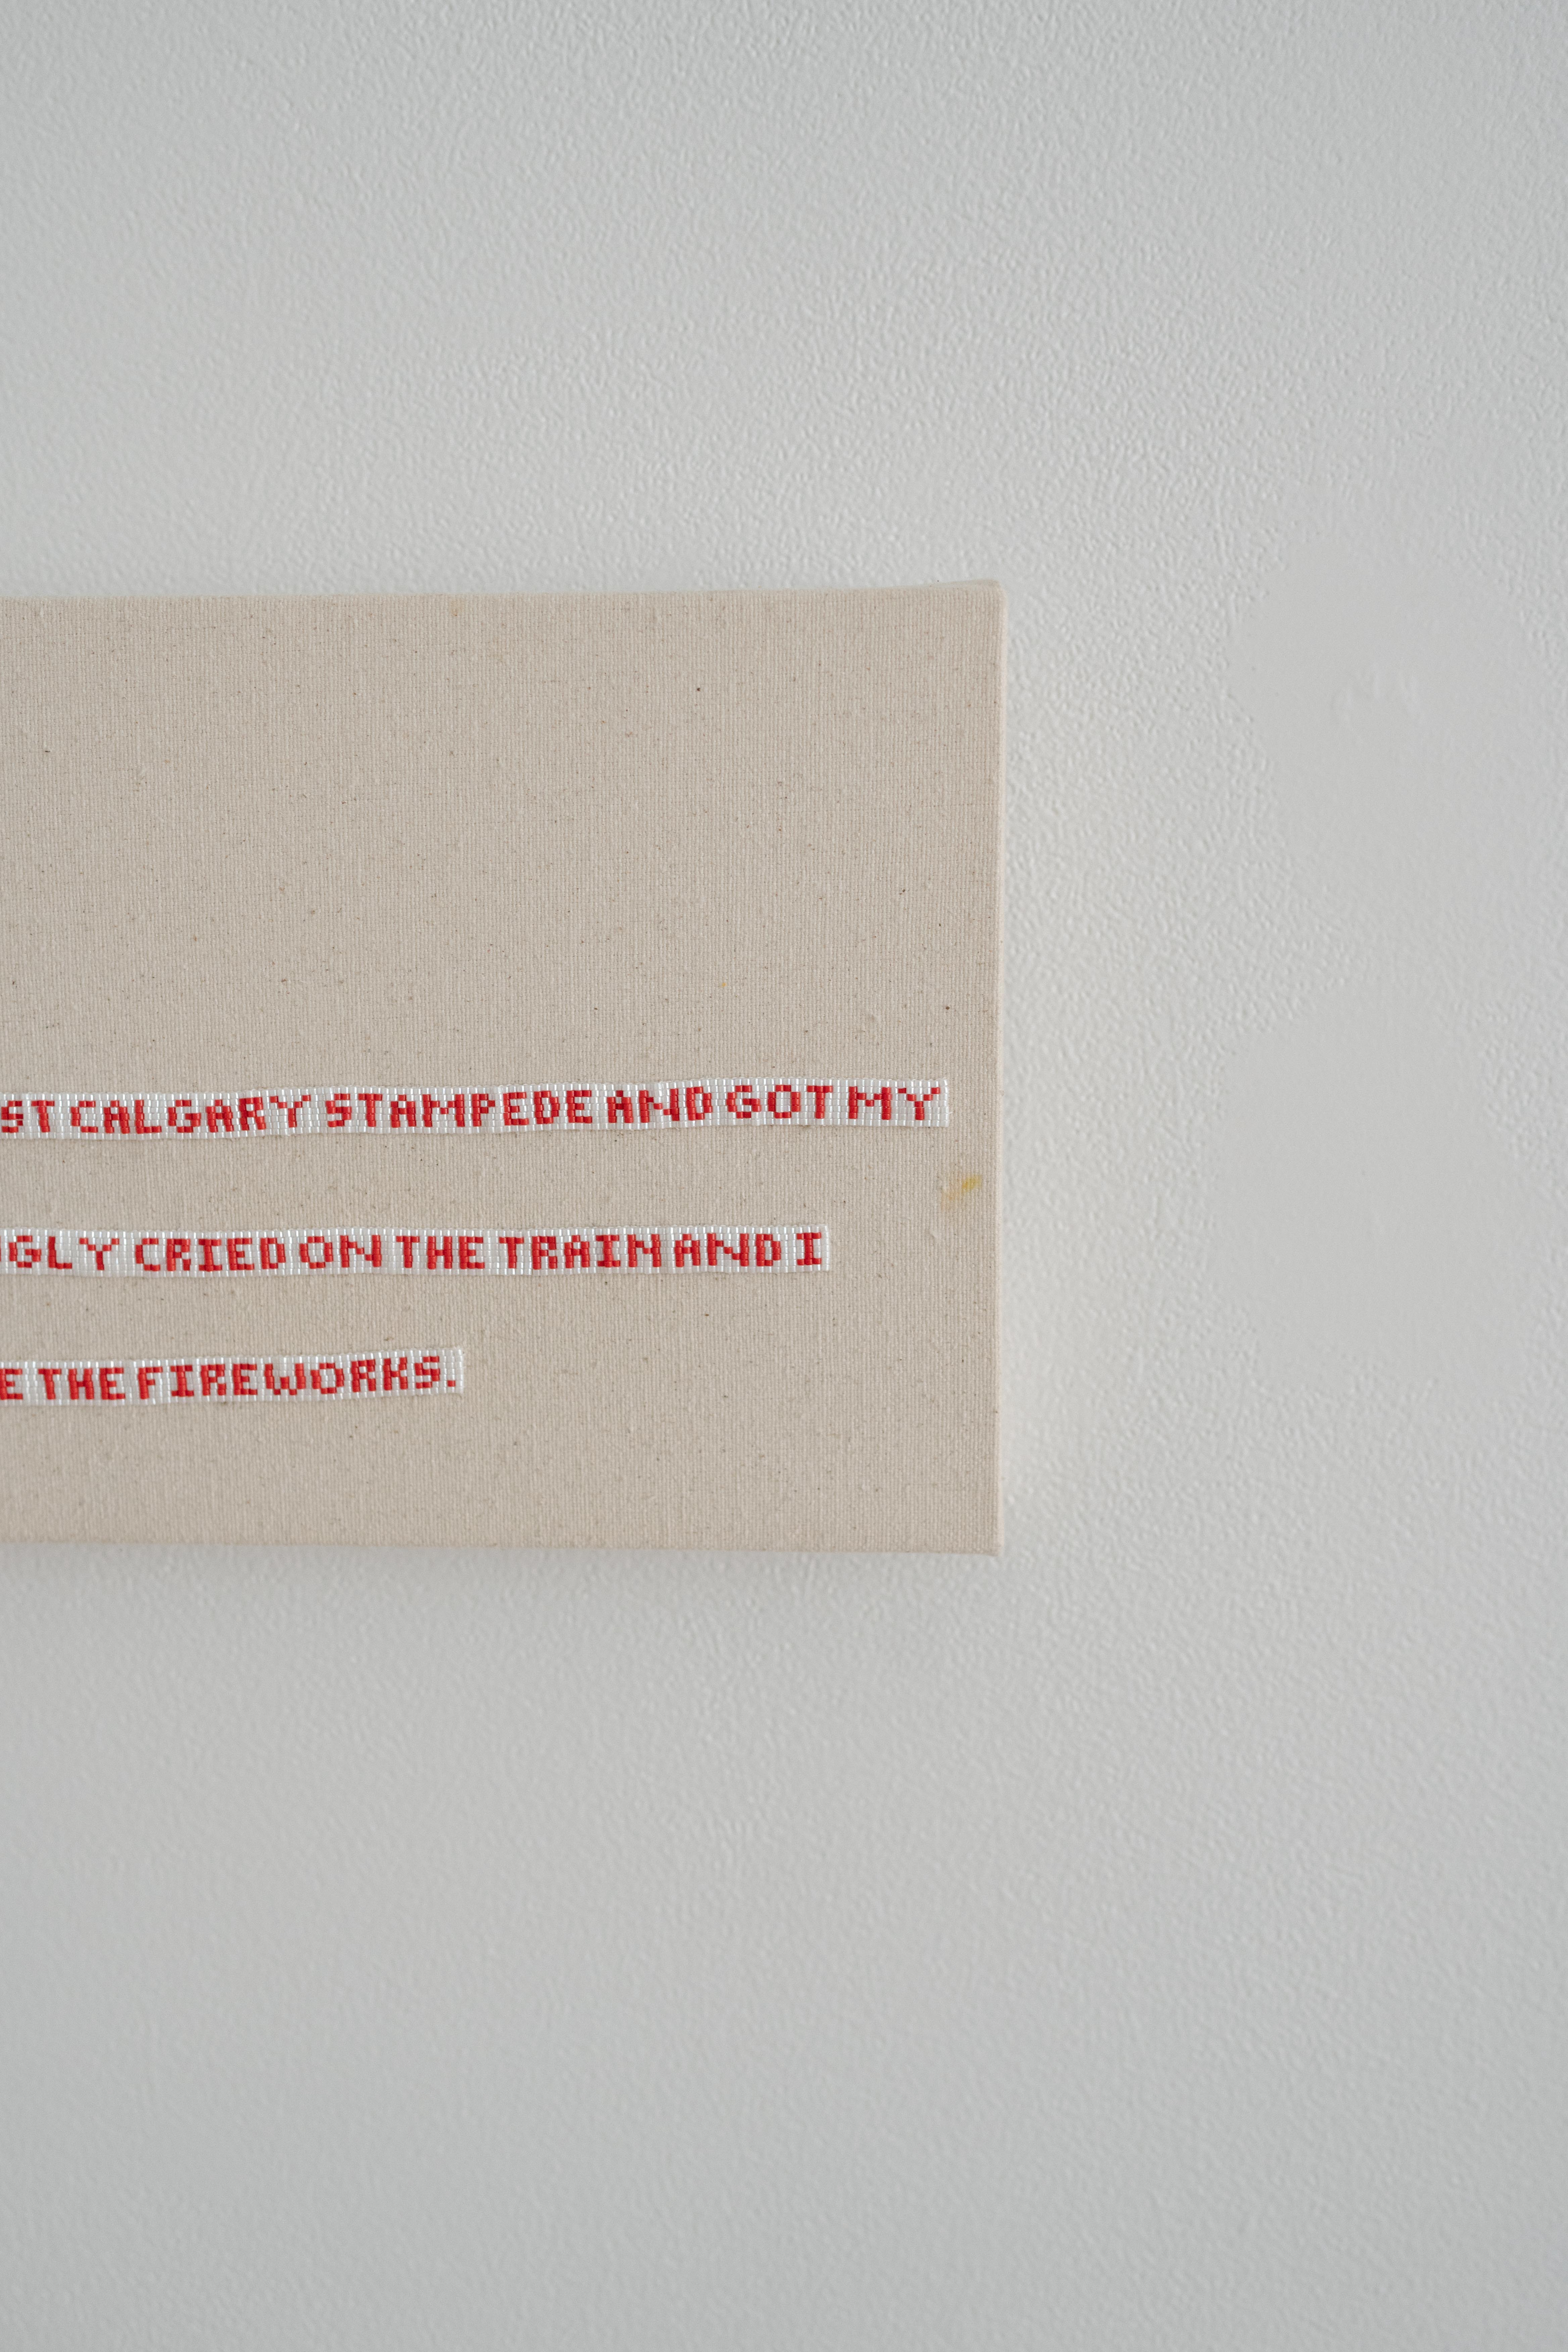 ST CALGARY STAMPEDE AND GOT MY
GLY CRIED ON THE TRAIN AND I
E THE FIREWORKS.